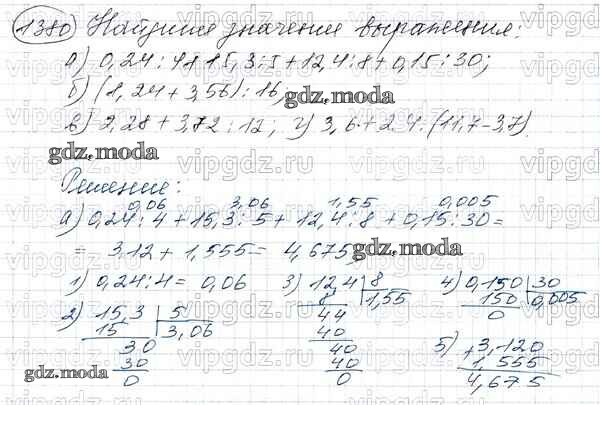 1380 Найдите значение выражения:
а) 0,24 : 4 + 15,3 : 5 + 12,4 : 8 + 0,15 : 30;
б) (1,24 + 3,56) : 16;
gdz.moda
в) 2,28 + 3,72 : 12; г) 3,6 + 2,4 : (11,7 - 3,7)
gdz.moda
Решение:
0,06 3,06 1,55 0,005
а) 0,24 : 4 + 15,3 : 5 + 12,4 : 8 + 0,15 : 30 =
= 3,12 + 1,555 = 4,675;
gdz.moda
1) 0,24 : 4 = 0,06
2) 15,3 5
15 3,06
30
30
0
3) 12,4 8
8 1,55
44
40
40
40
0
4) 0,150 30
150 0,005
0
5) + 3,120
1,555
4,675
gdz.moda
vipgdz.ru